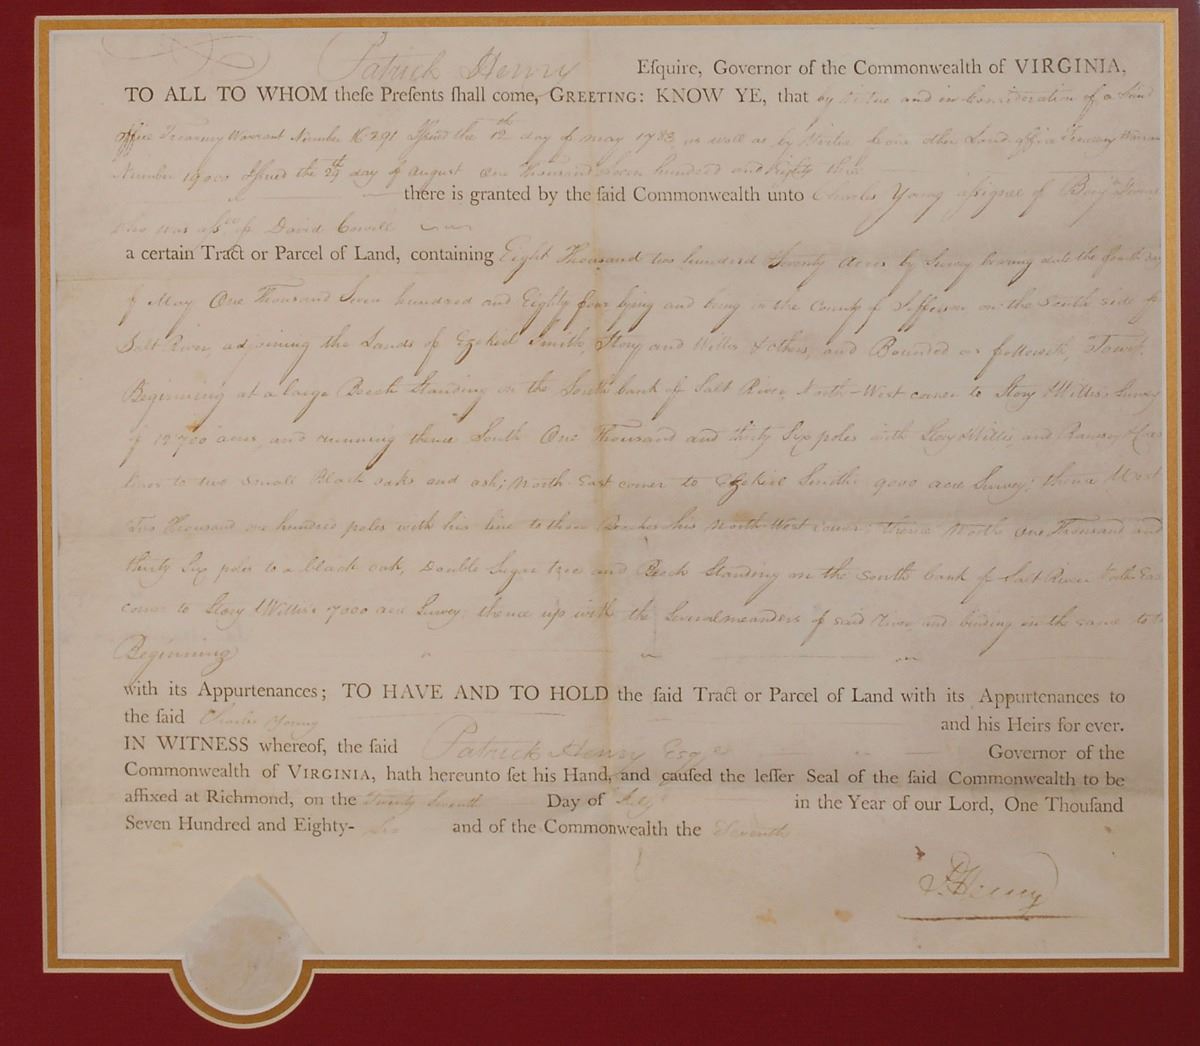 Patrick Henry Eſquire, Governor of the Commonwealth of VIRGINIA,
TO ALL TO WHOM theſe Preſents ſhall come, GREETING: KNOW YE, that by Virtue and in Consideration of a Land
Office Treasury Warrant Number Issued the 12th day of May 1783 as well as by Virtue of one other Land office Treasury Warrant
Number Issued the day of August One Thousand Seven hundred and Eighty three
there is granted by the ſaid Commonwealth unto Charles Young aſsignee of
who was aſsee of David
a certain Tract or Parcel of Land, containing Eight Thousand two hundred Seventy Acres by Survey bearing date the fourth day
of May One Thousand Seven hundred and Eighty four lying and being in the County of Jefferson on the South side of
Salt River, adjoining the Lands of Ezekiel Smith, Story and Willis & others, and Bounded as followeth, Towit,
Beginning at a large Beech Standing on the South bank of Salt River North-West corner to Story & Willis's Survey
of 12700 acres, and running thence South One Thousand and thirty Six poles with Story & Willis, and Ramsey &
lines to two small Black oaks and ash; North East corner to Ezekiel Smiths 9000 acre Survey; thence West
Two Thousand one hundred poles with his line to three Beeches his North-West corner; thence North One Thousand and
thirty Six poles to a black oak, Double Sugar tree and Beech Standing on the South bank of Salt River North East
corner to Story & Willis's 7000 acre Survey; thence up with the Several meanders of said River and binding on the same to the
Beginning
with its Appurtenances; TO HAVE AND TO HOLD the ſaid Tract or Parcel of Land with its Appurtenances to
the ſaid Charles Young and his Heirs for ever.
IN WITNESS whereof, the ſaid Patrick Henry Esqr Governor of the
Commonwealth of VIRGINIA, hath hereunto ſet his Hand, and cauſed the leſſer Seal of the ſaid Commonwealth to be
affixed at Richmond, on the Twenty Seventh Day of July in the Year of our Lord, One Thouſand
Seven Hundred and Eighty- Six and of the Commonwealth the Eleventh
P. Henry